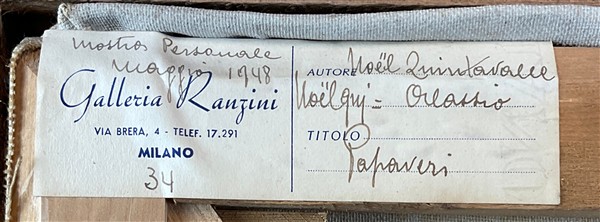 Mostra Personale
Maggio 1948
Galleria Ranzini
VIA BRERA, 4 - TELEF. 17.291
MILANO
34
AUTORE Noël Quintavalle
Noëlqui = Alassio
TITOLO
Papaveri